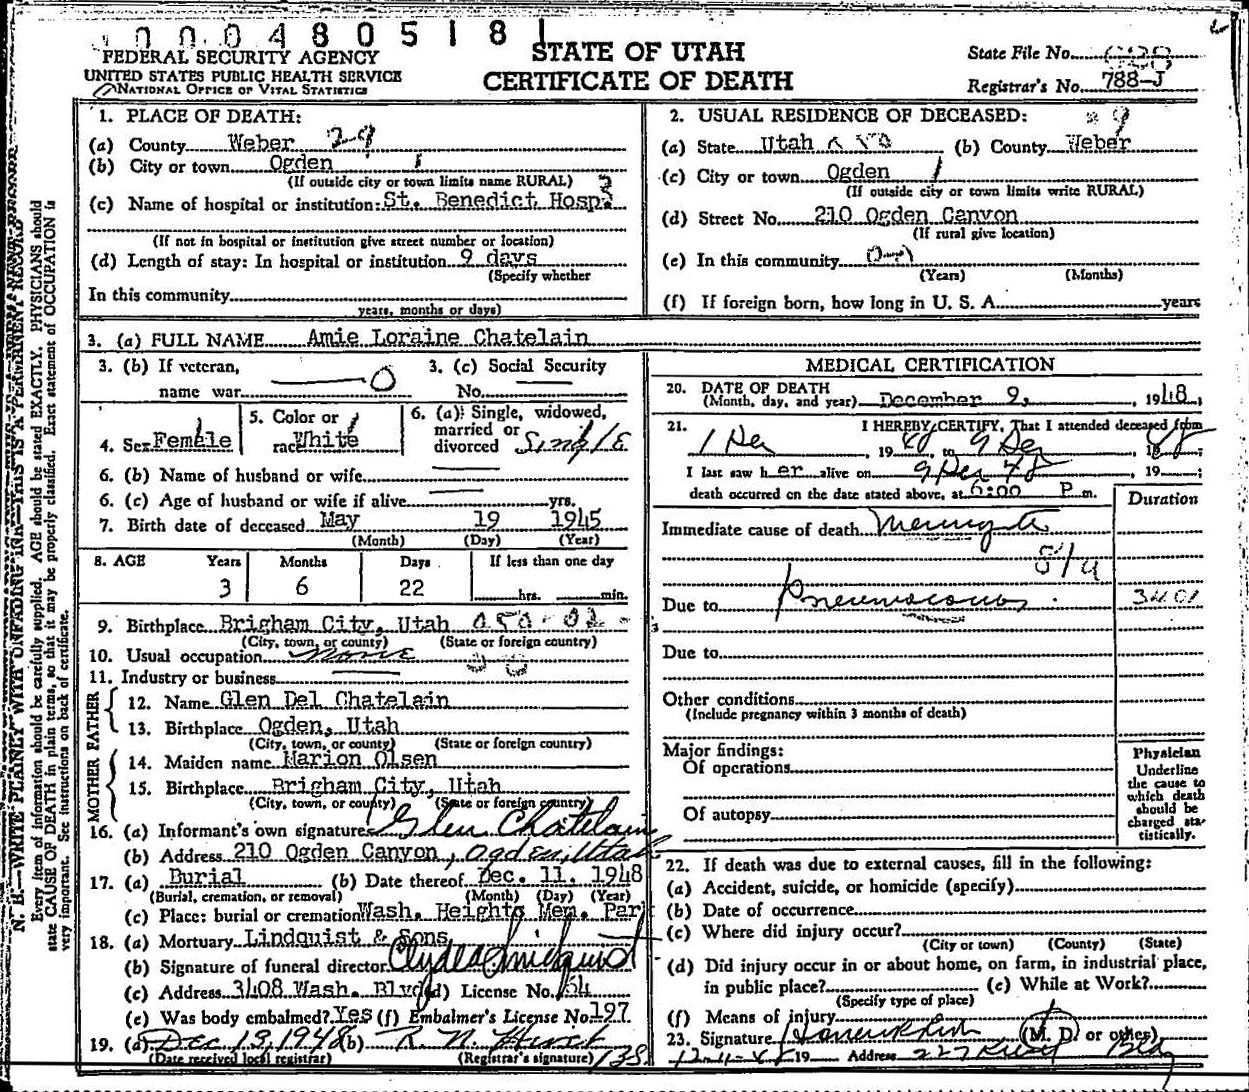 0004805181
FEDERAL SECURITY AGENCY
UNITED STATES PUBLIC HEALTH SERVICE
NATIONAL OFFICE OF VITAL STATISTICS
STATE OF UTAH
CERTIFICATE OF DEATH
State File No.
Registrar's No. 788-J
N. B.—WRITE PLAINLY WITH UNFADING INK—THIS IS A PERMANENT RECORD
Every item of information should be carefully supplied. AGE should be stated EXACTLY. PHYSICIANS should
state CAUSE OF DEATH in plain terms, so that it may be properly classified. Exact statement of OCCUPATION is
very important. See instructions on back of certificate.
1. PLACE OF DEATH:
(a) County Weber 29
(b) City or town Ogden 1
(If outside city or town limits name RURAL)
(c) Name of hospital or institution: St. Benedict Hosp. 3
(If not in hospital or institution give street number or location)
(d) Length of stay: In hospital or institution 9 days
(Specify whether
In this community
years, months or days)
2. USUAL RESIDENCE OF DECEASED:
(a) State Utah (b) County Weber
(c) City or town Ogden 1
(If outside city or town limits write RURAL)
(d) Street No. 210 Ogden Canyon
(If rural give location)
(e) In this community
(Years) (Months)
(f) If foreign born, how long in U. S. A. years
3. (a) FULL NAME Amie Loraine Chatelain
3. (b) If veteran,
name war 0
3. (c) Social Security
No.
4. Sex Female
5. Color or
race White
6. (a) Single, widowed,
married or
divorced Single
6. (b) Name of husband or wife
6. (c) Age of husband or wife if alive yrs.
7. Birth date of deceased May 19 1945
(Month) (Day) (Year)
8. AGE Years Months Days If less than one day
3 6 22 hrs. min.
9. Birthplace Brigham City, Utah
(City, town, or county) (State or foreign country)
10. Usual occupation none
11. Industry or business
FATHER
12. Name Glen Del Chatelain
13. Birthplace Ogden, Utah
(City, town, or county) (State or foreign country)
MOTHER
14. Maiden name Marion Olsen
15. Birthplace Brigham City, Utah
(City, town, or county) (State or foreign country)
16. (a) Informant's own signature Glen Chatelain
(b) Address 210 Ogden Canyon, Ogden, Utah
17. (a) Burial (b) Date thereof Dec. 11, 1948
(Burial, cremation, or removal) (Month) (Day) (Year)
(c) Place: burial or cremation Wash. Heights Mem. Par
18. (a) Mortuary Lindquist & Sons
(b) Signature of funeral director Clyde Lindquist
(c) Address 3408 Wash. Blvd (d) License No. 54
(e) Was body embalmed? Yes (f) Embalmer's License No. 197
19. (a) Dec 13, 1948 (b) R. N. Hirst
(Date received local registrar) (Registrar's signature) 138
MEDICAL CERTIFICATION
20. DATE OF DEATH
(Month, day, and year) December 9, 1948
21. I HEREBY CERTIFY, That I attended deceased from
1 Dec 1948 to 9 Dec 1948
I last saw her alive on 9 Dec 48 19 ;
death occurred on the date stated above, at 6:00 P m.
Duration
Immediate cause of death Meningitis
8/9
Due to Pneumococcus. 3401
Due to
Other conditions
(Include pregnancy within 3 months of death)
Major findings:
Of operations
Of autopsy
Physician
Underline
the cause to
which death
should be
charged sta-
tistically.
22. If death was due to external causes, fill in the following:
(a) Accident, suicide, or homicide (specify)
(b) Date of occurrence
(c) Where did injury occur?
(City or town) (County) (State)
(d) Did injury occur in or about home, on farm, in industrial place,
in public place? (e) While at Work?
(Specify type of place)
(f) Means of injury
23. Signature (M. D. or other)
12-11-48 19 Address 227 Bldg